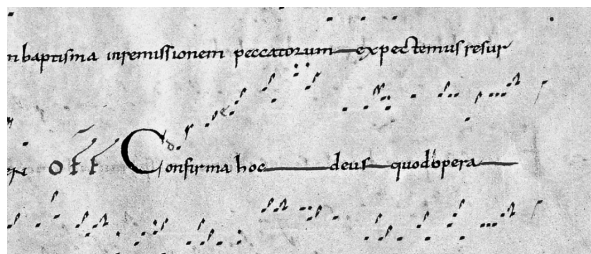 baptisma inremissionem peccatorum expectemus resur
off Confirma hoc deus quod opera